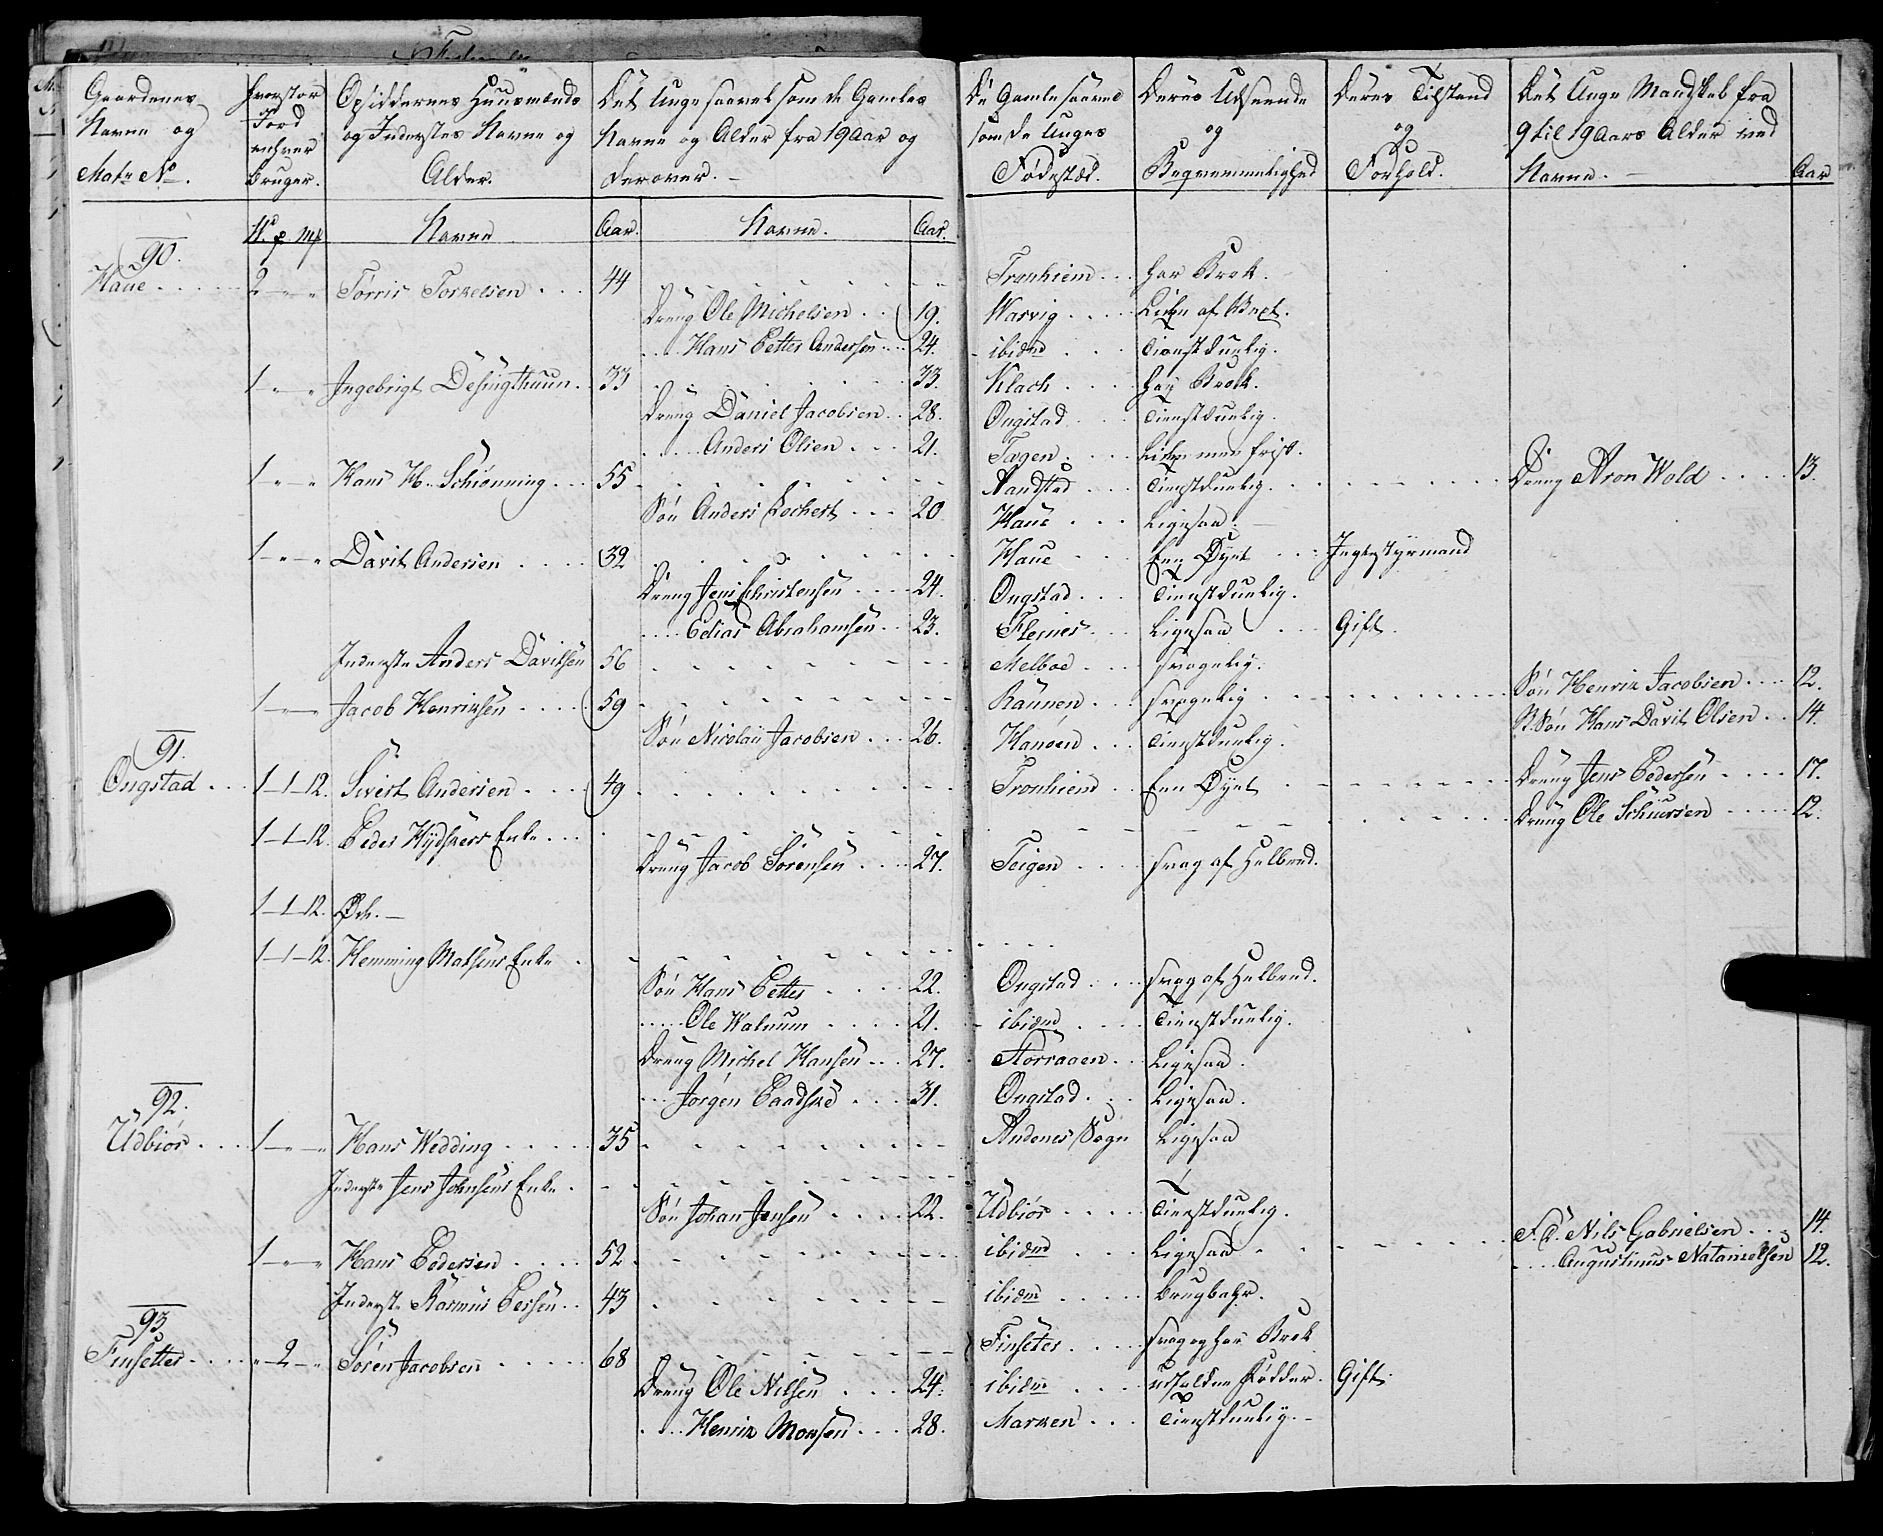 Gaardenes Navne og Matr No.
hvorstor Jord enhver Bruger.
Opsiddernes Huusmænds og Inderstes Navne og Alder.
Det Unge saavel som de Gamles Navne og Alder fra 19 Aar og derover.
De Gamle saavel som de Unges Fødestæd.
Deres Udseende og Beqvemmelighed
Deres Tilstand og Forhold.
Det Unge Mandskab fra 9 til 19 Aars Alder ved Navne.
Aar
Navne Aar. Navne. Aar.
90.
Haue 2 Tørris Torkelsen 44 Tronhiem har Brok.
Dreng Ole Michelsen 19. Warvig Liden af Vext.
Hans Petter Andersen 24. ibidem Tienstdyelig.
1 Ingebrigt Desingthuun 33 33. Klach har Brok.
Dreng Daniel Jacobsen 28. Ongstad Tienstduelig.
Anders Olsen 21. Tagen Liden men frisk.
1 Hans H. Schiønning 55 Sandstad Tienstduelig. Dreng Aron Wold 13.
Søn Anders Lochert 20 Haue Ligesaa.
1 Davit Andersen 32 Haue Een Øyet Jægtestyrmand
Dreng Jens Christensen 24. Ongstad Tienstduelig.
Elias Abrahamsen 23. Flesnes Ligesaa Gift.
Inderste Anders Davitsen 56 Melboe svagelig.
1 Jacob Henriksen 59 Rannen svagelig Søn Henrik Jacobsen 12.
Søn Nicolai Jacobsen 26. Hanøen Tienstduelig. St. Søn Hans Davit Olsen 14.
91.
Ongstad 1-1-12. Sivert Andersen 49 Tronhiem Een Øyet Dreng Jens Pedersen 17.
1-1-12. Peder Hydskers Enke Dreng Ole Schuersen 12.
Dreng Jacob Sørensen 27. Teigen svag af Helbred.
1-1-12. Øde.
1-1-12. Hemming Matsens Enke
Søn Hans Petter 22. Ongstad svag af Helbred.
Ole Walnum 21. ibidem Tienstduelig.
Dreng Michel Hansen 27. Storraaen Ligesaa.
Jørgen Baadske 31. Ongstad Ligesaa.
92.
Udbiør 1 Hans Wedding 35 Andenes Sogn Ligesaa
Inderste Jens Johnsens Enke
Søn Johan Jensen 22. Udbiør Tienstduelig.
1 Hans Pedersen 52 ibidem Ligesaa F. S. Nils Gabrielsen 14.
Augustinus Natanielsen 12.
Inderste Rasmus Persen 43 ibidem Brugbahr.
93
Finsetter 2 Søren Jacobsen 68 Finsetter svag og har Brok
Dreng Ole Nilsen 24. ibidem Fødder. Gift.
Henrik Monsen 28. Marken Tienstduelig.